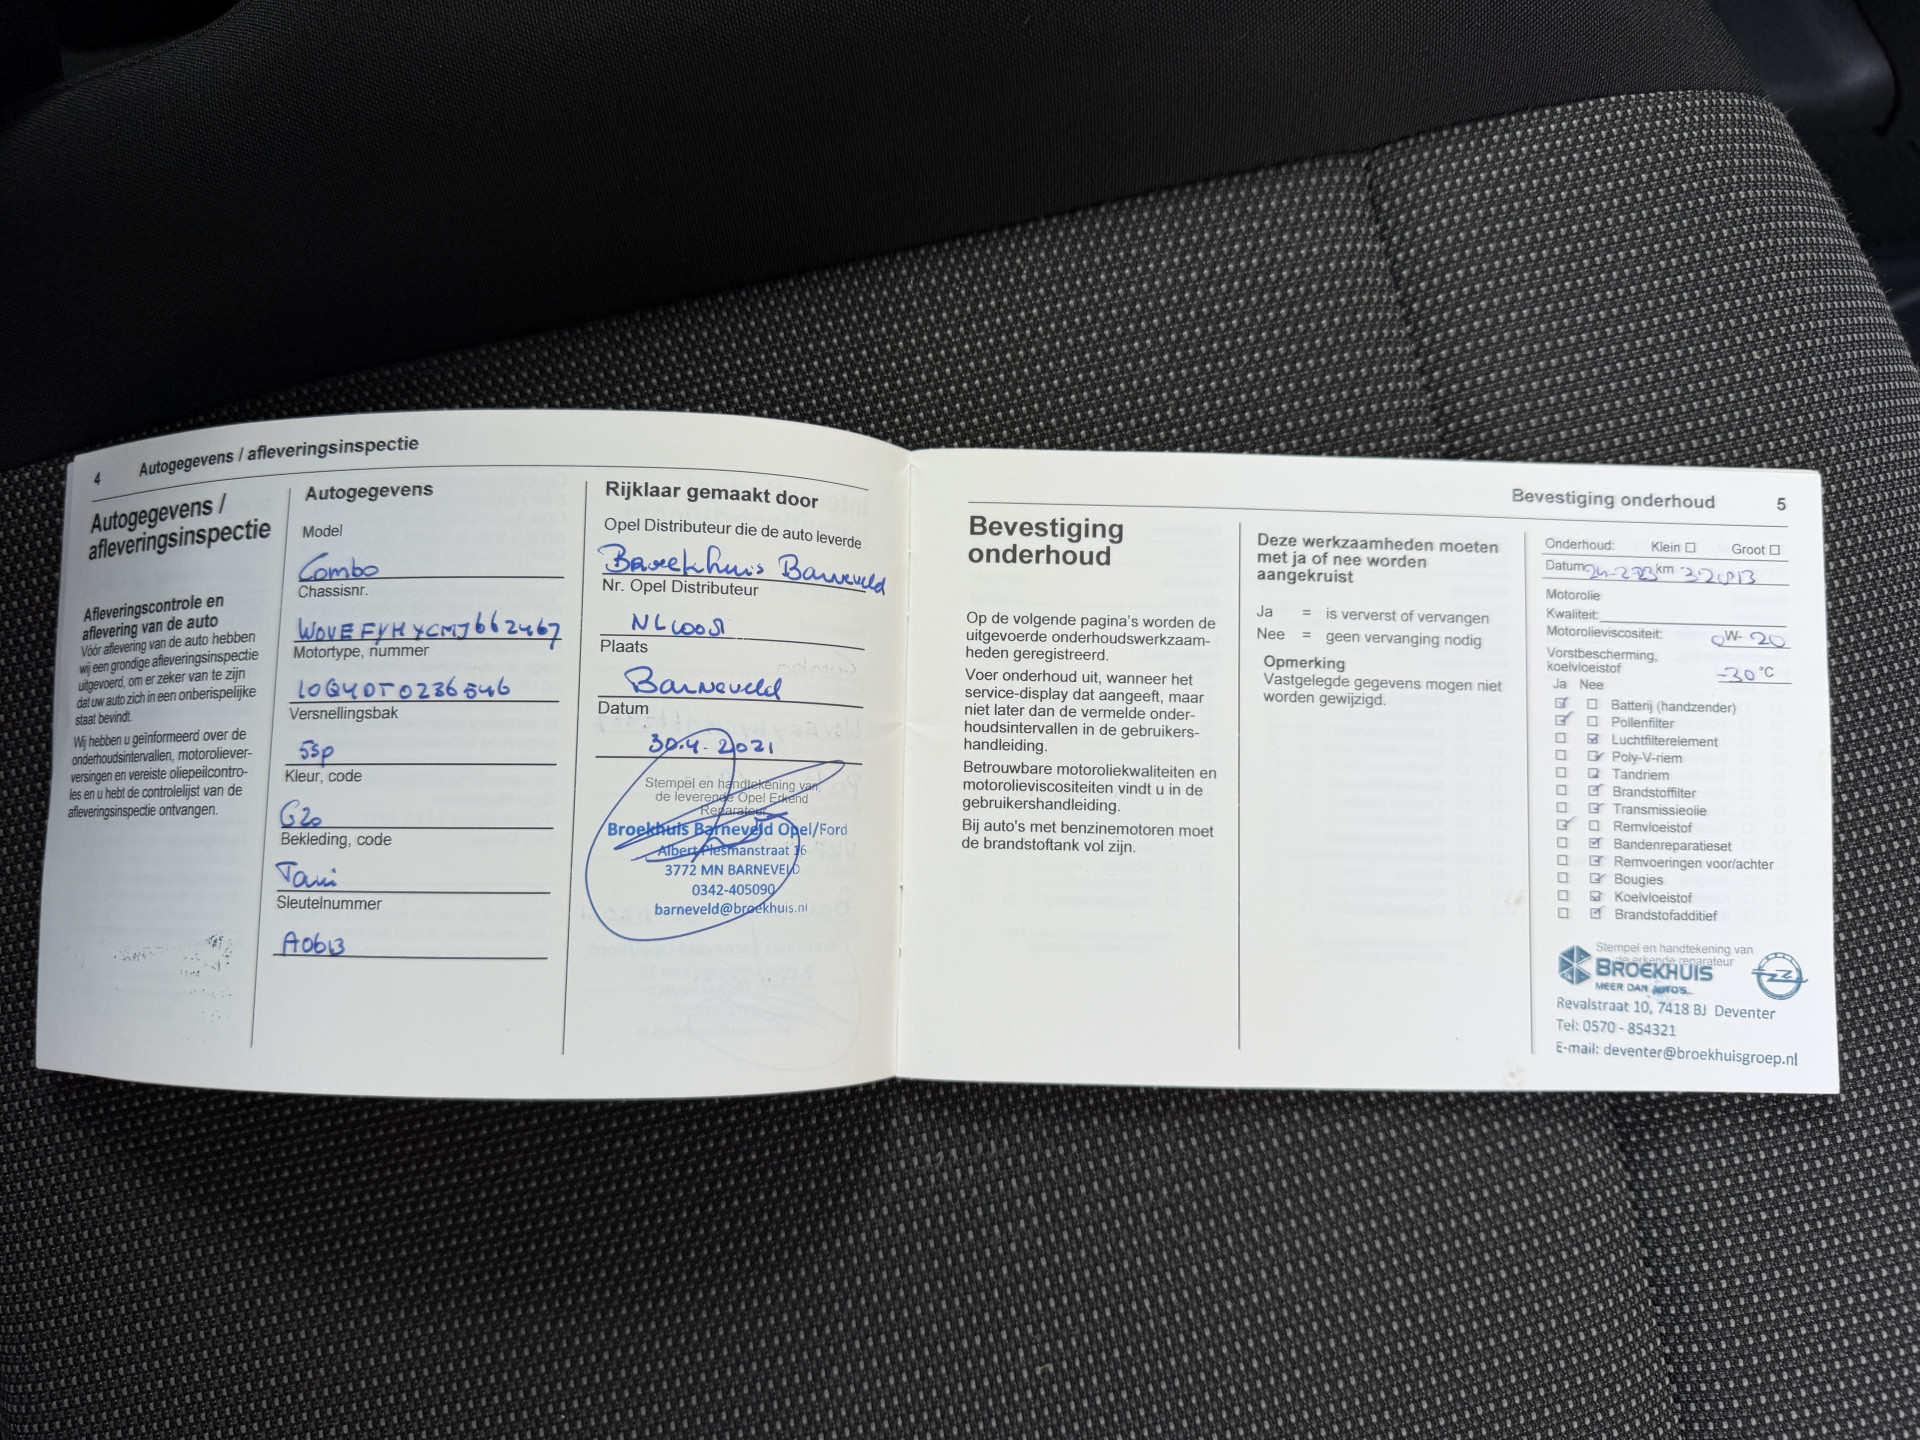 4 Autogegevens / afleveringsinspectie
Autogegevens /
afleveringsinspectie
Afleveringscontrole en
aflevering van de auto
Vóór aflevering van de auto hebben
wij een grondige afleveringsinspectie
uitgevoerd, om er zeker van te zijn
dat uw auto zich in een onberispelijke
staat bevindt.
Wij hebben u geïnformeerd over de
onderhoudsintervallen, motoroliever-
versingen en vereiste oliepeilcontro-
les en u hebt de controlelijst van de
afleveringsinspectie ontvangen.
Autogegevens
Model
Combo
Chassisnr.
W0VEFYHYCMJ662467
Motortype, nummer
10Q4DT0236546
Versnellingsbak
5sp
Kleur, code
G20
Bekleding, code
Sleutelnummer
A0613
Rijklaar gemaakt door
Opel Distributeur die de auto leverde
Broekhuis Barneveld
Nr. Opel Distributeur
Plaats
Barneveld
Datum
30.4.2021
Stempel en handtekening van
de leverende Opel Erkend
Reparateur
Broekhuis Barneveld Opel/Ford
Albert Plesmanstraat 16
3772 MN BARNEVELD
0342-405090
barneveld@broekhuis.nl
Bevestiging onderhoud 5
Bevestiging
onderhoud
Op de volgende pagina's worden de
uitgevoerde onderhoudswerkzaam-
heden geregistreerd.
Voer onderhoud uit, wanneer het
service-display dat aangeeft, maar
niet later dan de vermelde onder-
houdsintervallen in de gebruikers-
handleiding.
Betrouwbare motoroliekwaliteiten en
motorolieviscositeiten vindt u in de
gebruikershandleiding.
Bij auto's met benzinemotoren moet
de brandstoftank vol zijn.
Deze werkzaamheden moeten
met ja of nee worden
aangekruist
Ja = is ververst of vervangen
Nee = geen vervanging nodig
Opmerking
Vastgelegde gegevens mogen niet
worden gewijzigd.
Onderhoud: Klein Groot
Datum km
Motorolie
Kwaliteit:
Motorolieviscositeit: 0W-20
Vorstbescherming,
koelvloeistof -30°C
Ja Nee
Batterij (handzender)
Pollenfilter
Luchtfilterelement
Poly-V-riem
Tandriem
Brandstoffilter
Transmissieolie
Remvloeistof
Bandenreparatieset
Remvoeringen voor/achter
Bougies
Koelvloeistof
Brandstofadditief
Stempel en handtekening van
de erkende reparateur
BROEKHUIS
MEER DAN AUTO'S
Revalstraat 10, 7418 BJ Deventer
Tel: 0570 - 854321
E-mail: deventer@broekhuisgroep.nl